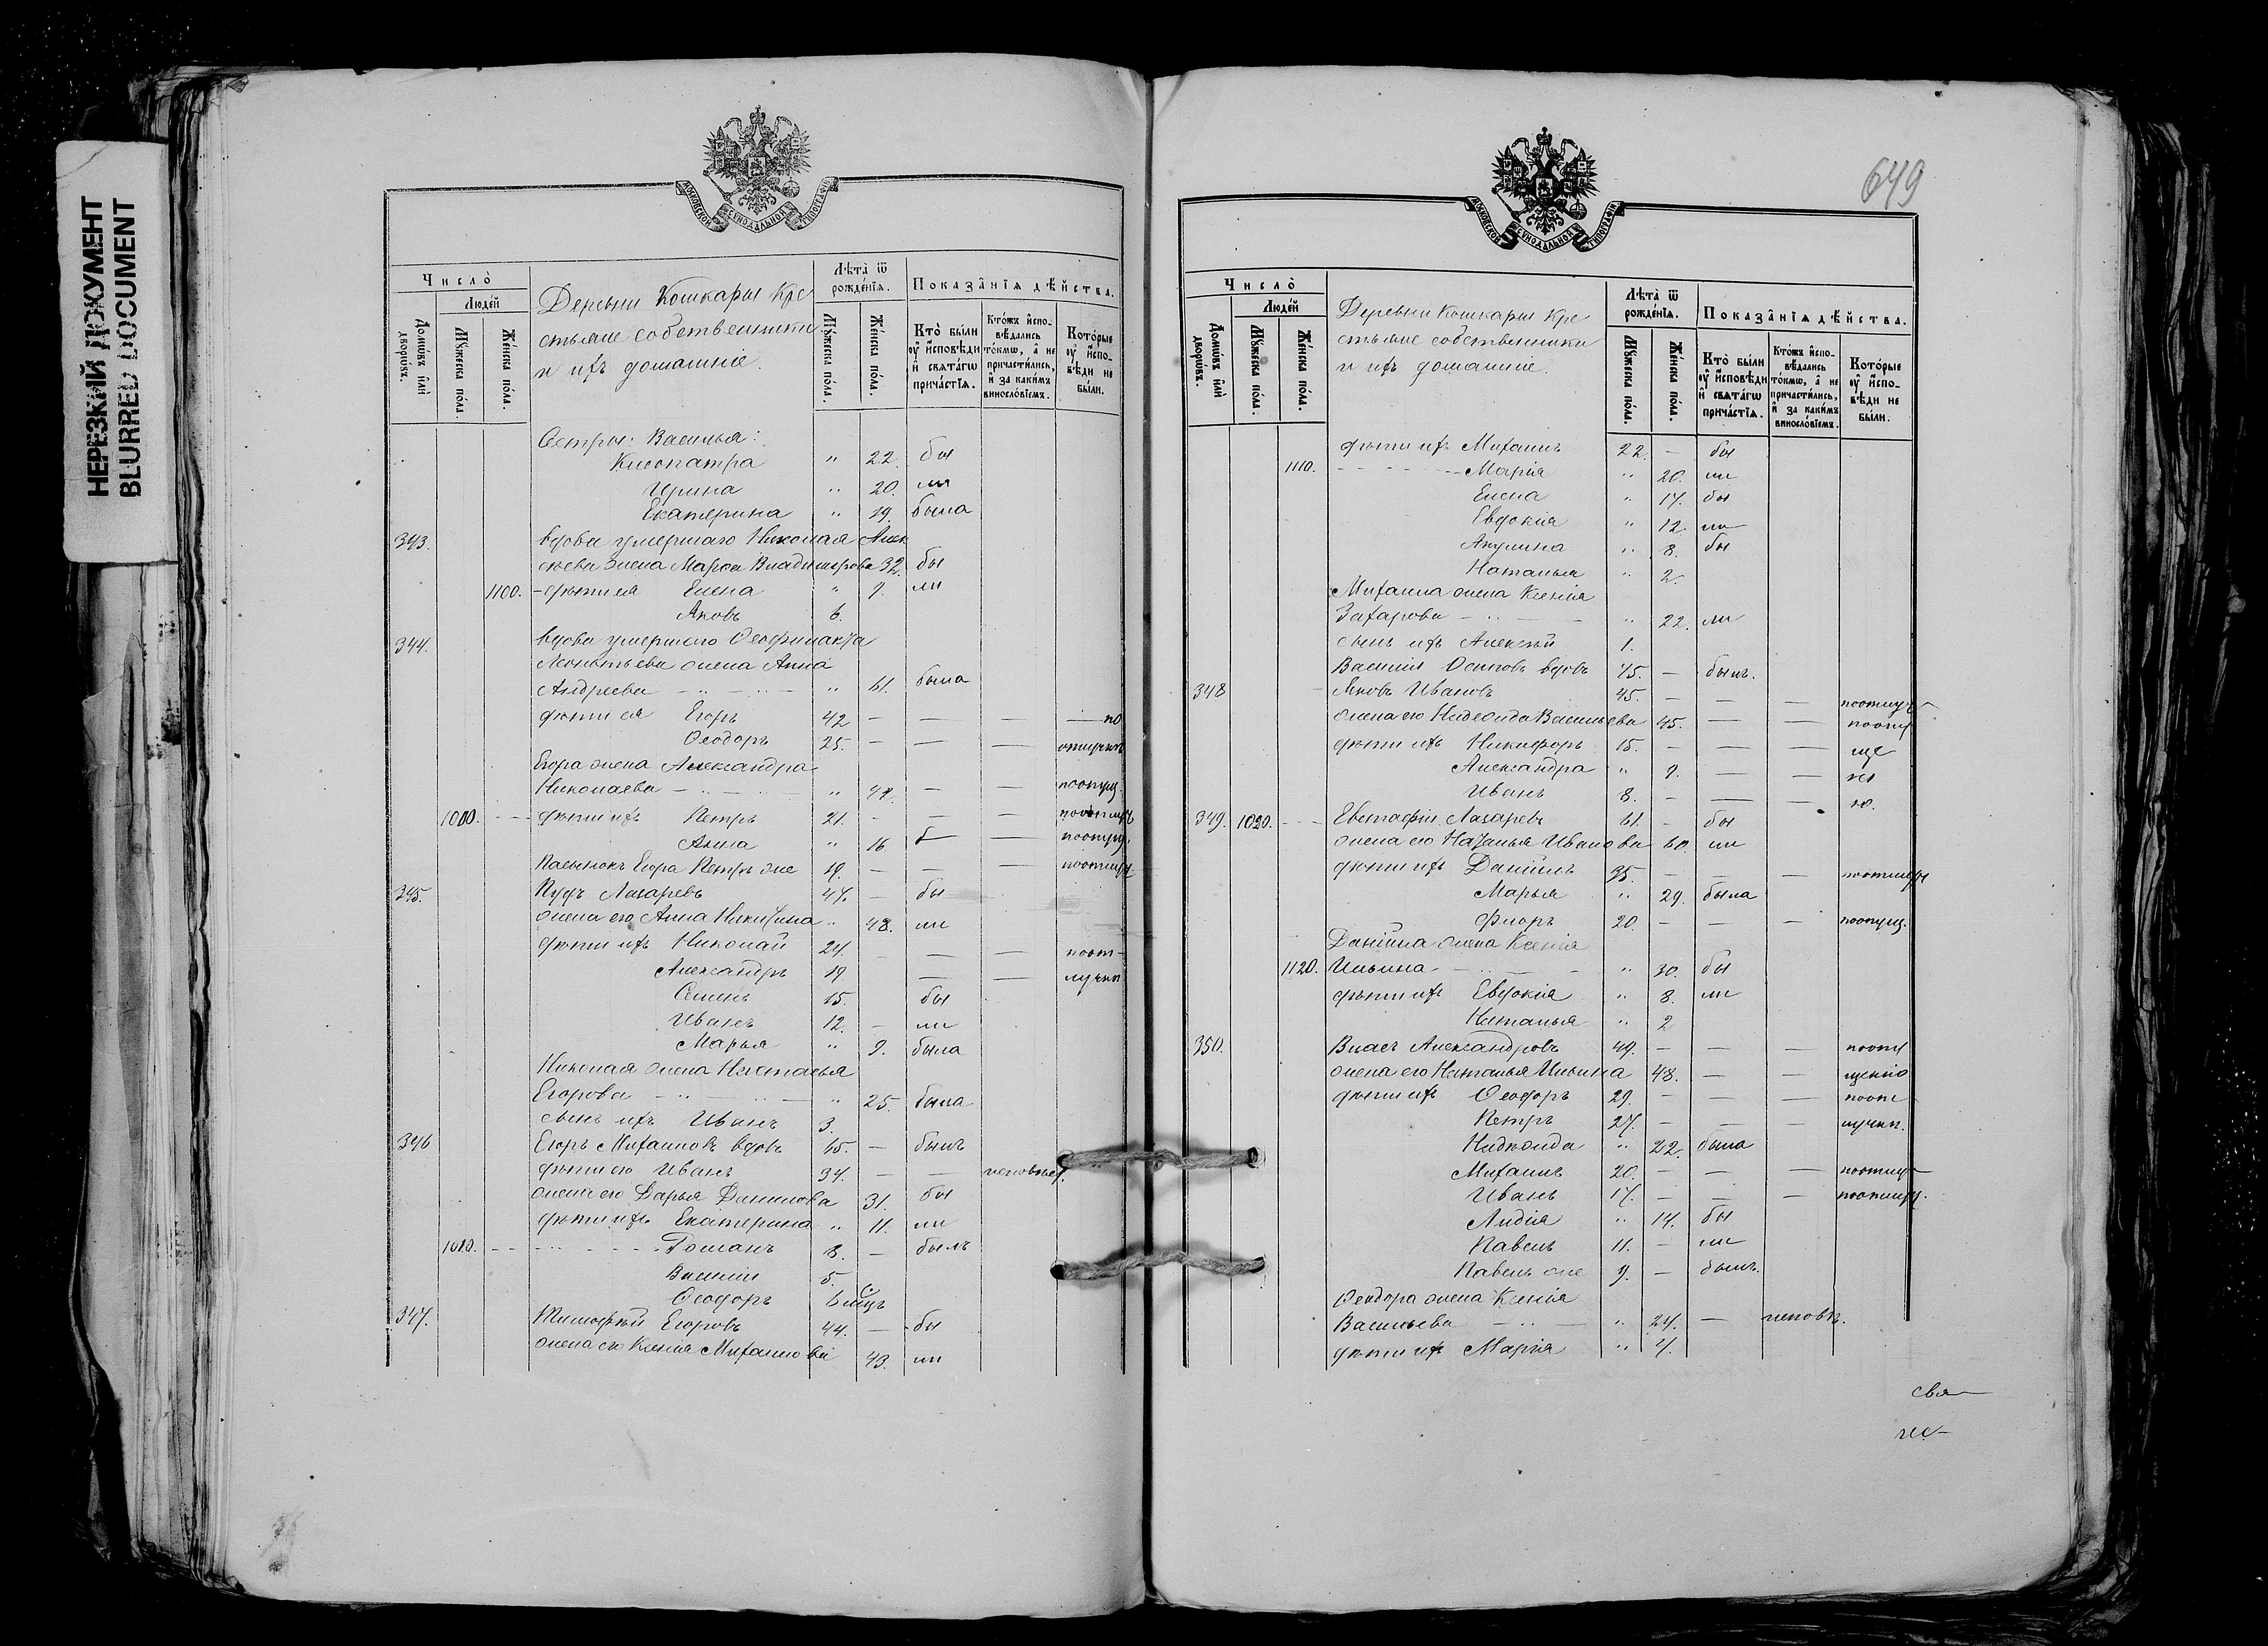 НЕРЕЗКИЙ ДОКУМЕНТ
BLURRED DOCUMENT
МОСКОВСКОЙ СѴНОДАЛЬНОЙ ТИПОГРАФІИ
Число̀
Людей
Домѡвъ и҆лѝ дворѡвъ.
Мꙋжеска пола.
Женска пола.
Деревни Кошкары Кре
стьяне собственники
и ихъ домашніе.
Лѣта̀ ѿ рожденїѧ.
Мꙋжеска пола.
Женска пола.
Показанїѧ дѣйства.
Кто̀ были ᲂу҆ и҆сповѣди и҆ свѧтагѡ причастїѧ.
Ктожъ и҆сповѣдались токмѡ, а҆ не причастились, и҆ за какимъ винословїемъ.
Которые ᲂу҆ и҆сповѣди не были.
Сестры: Василья:
Клеопатра " 22. бы
Ирина " 20. ли
Екатерина " 19. была
343. вдова умершаго Николая Алек
сѣева жена Марѳа Владимірова 32. бы
1100. - дѣти ея Елена " 9. ли
Яковъ 6.
344. вдова умершаго Ѳеофилакта
Леонтьева жена Анна
Андреева " 61. была
дѣти ея Егоръ 42 — — — — по
Ѳеодоръ 25. — — — отлучкѣ
Егора жена Александра
Николаева " 47. — — поопущ.
1000. дѣти ихъ Петръ 21. — — — поотлуч
Анна " 16 — — поопущ.
Пасынокъ Егора Петръ же 19. — — — поотлуч.
345. Пудъ Лазаревъ 47. — бы
жена его Анна Никитина " 48. ли
дѣти ихъ Николай 24. — — поот-
Александръ 19 — — лучкѣ
Семенъ 15. бы
Иванъ 12. — ли
Марья " 9. была
Николая жена Наталья
Егорова " 25. была
сынъ ихъ Иванъ 3.
346 Егоръ Михаиловъ вдовъ 65. — былъ
дѣти его Иванъ 34. — — исповѣд.
жена его Дарья Данилова 31. бы
дѣти ихъ Екатерина " 11. ли
1010. Романъ 8. — былъ
Василій 5.
Ѳеодоръ 6 мцъ
347. Тимофѣй Егоровъ 44. — бы
жена его Ксенія Михаилова 43. ли
649
МОСКОВСКОЙ СѴНОДАЛЬНОЙ ТИПОГРАФІИ
Число̀
Людей
Домѡвъ и҆лѝ дворѡвъ.
Мꙋжеска пола.
Женска пола.
Деревни Кошкары Кре
стьяне собственники
и ихъ домашніе.
Лѣта̀ ѿ рожденїѧ.
Мꙋжеска пола.
Женска пола.
Показанїѧ дѣйства.
Кто̀ были ᲂу҆ и҆сповѣди и҆ свѧтагѡ причастїѧ.
Ктожъ и҆сповѣдались токмѡ, а҆ не причастились, и҆ за какимъ винословїемъ.
Которые ᲂу҆ и҆сповѣди не были.
дѣти ихъ Михаилъ 22. — бы
1110. Марія " 20. ли
Елена " 17. бы
Евдокія " 12. ли
Акулина " 8. бы
Наталья " 2.
Михаила жена Ксенія
Захарова " 22. ли
сынъ ихъ Алексѣй 1.
Василій Осиповъ вдовъ 75. — былъ.
348 Яковъ Ивановъ 45. — — — поотлуч
жена его Надежда Васильева 45. — — поопу
дѣти ихъ Никифоръ 15. — — — ще
Александра " 9. — — ні
Иванъ 8. — — — ю.
349. 1020. Евстафій Лазаревъ 61. — бы
жена его Наталья Иванова 60. ли
дѣти ихъ Даніилъ 35. — — — поотлуч
Марья " 29. была
Флоръ 20. — — — поопущ.
Даніила жена Ксенія
1120. Ильина " 30. бы
дѣти ихъ Евдокія " 8. ли
Наталья " 2
350. Власъ Александровъ 49. — — — поопу
жена его Наталья Ильина 48. — — щенію
дѣти ихъ Ѳеодоръ 29. — — — поот
Петръ 27. — — — лучкѣ.
Надежда " 22. была
Михаилъ 20. — — — поотлуч
Иванъ 17. — — — поотлуч.
Лидія " 14. бы
Павелъ 11. — ли
Павелъ же 9. — былъ.
Ѳеодора жена Ксенія
Васильева " 24. — исповѣ.
дѣти ихъ Марія " 4.
свя